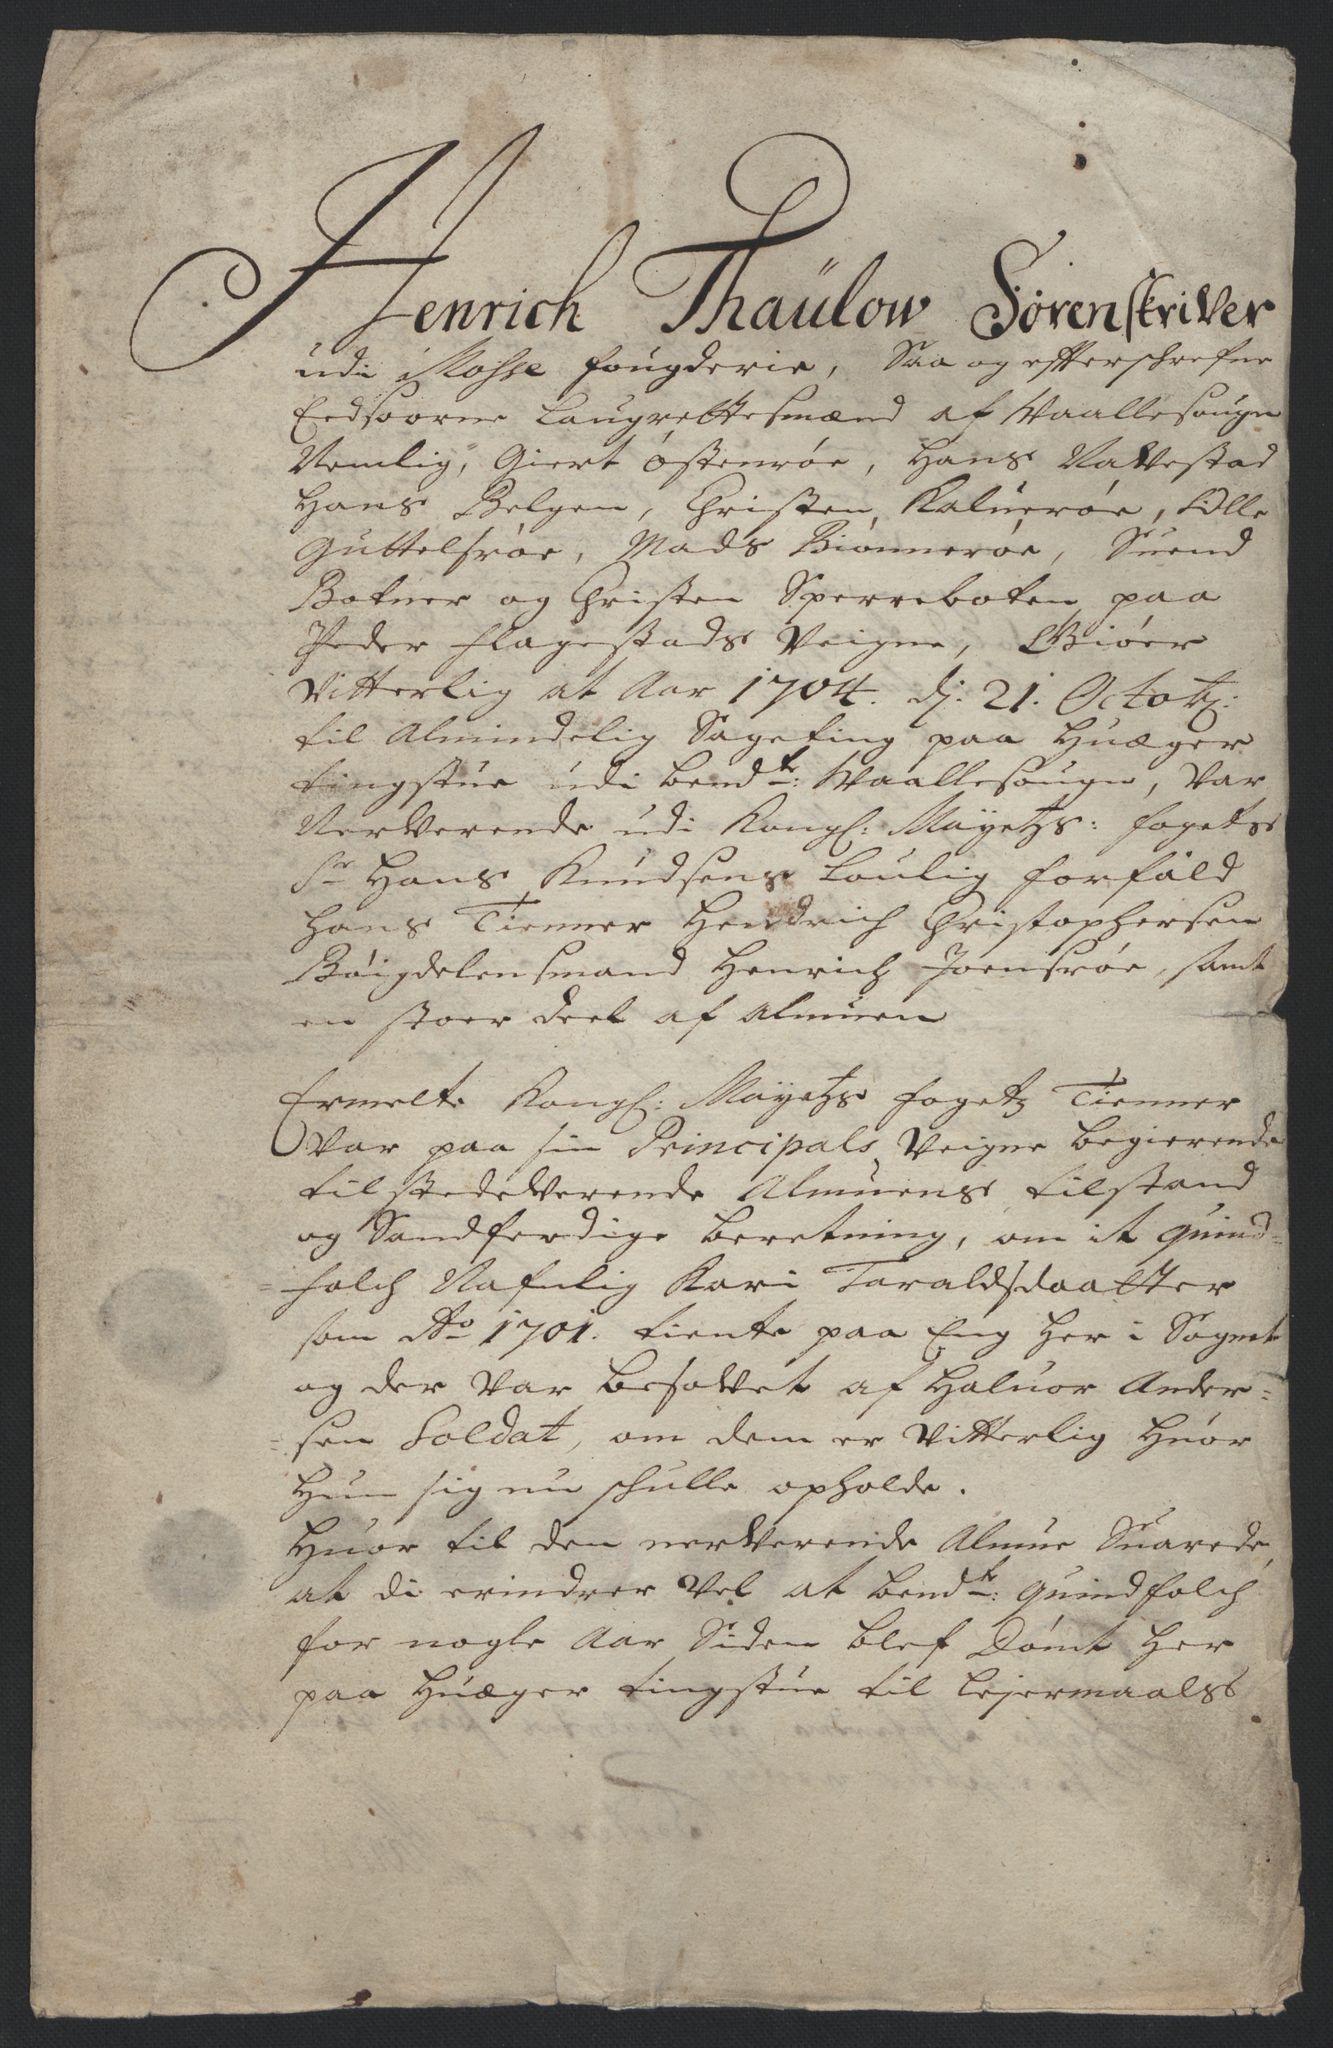 Henrich Thaülow Sørenskriver
udi Mosse fougderie, Saa og effterschrefne
Eedsoorne Laugrettesmænd af Waallesougn
Nemlig, Giert Østenrøe, Hans Navestad
Hans Belgen, Christen Kaluerøe, Olle
Guttelsrøe, Mads Biønnerøe, Suend
Botner og Christen Sperrebotn, paa
Peder Flagestads Veigne, Giøer
Vitterlig at Aar 1704. dj: 21. Octobr:
til Almindelig Sageting paa Huæger
tingstue udi bemdte: Waallesougn, Var
Nerverende udi Kongl: Mayetzs: fogets
Sr Hans Knudsens Loulig forfald
Hans Tienner Hendrich Christophersen
Bøigdelensmand Henrich Joensrøe, samt
en stoer deel af Almuen
Ermelte Kongl: Mayetzs fogetz Tienner
Var paa sin Principals Veigne begierende
til stedeverende Almuens tilstand
og Sandferdige beretning, om it quind-
-folch Nafnlig Kari Taraldsdaatter
som Ao 1701. tiente paa Eng her i Sognet
og der Var besovet af Haluor Ander-
-sen Soldat, om dem er Vitterlig Huor
Hun sig nu schulle opholde.
Huor til den nerverende Almue Suarede,
at di erindrer Vel at bemdte: quindfolch
for nogle Aar Siden blef Dømt her
paa Huæger tingstue til Lejermaals